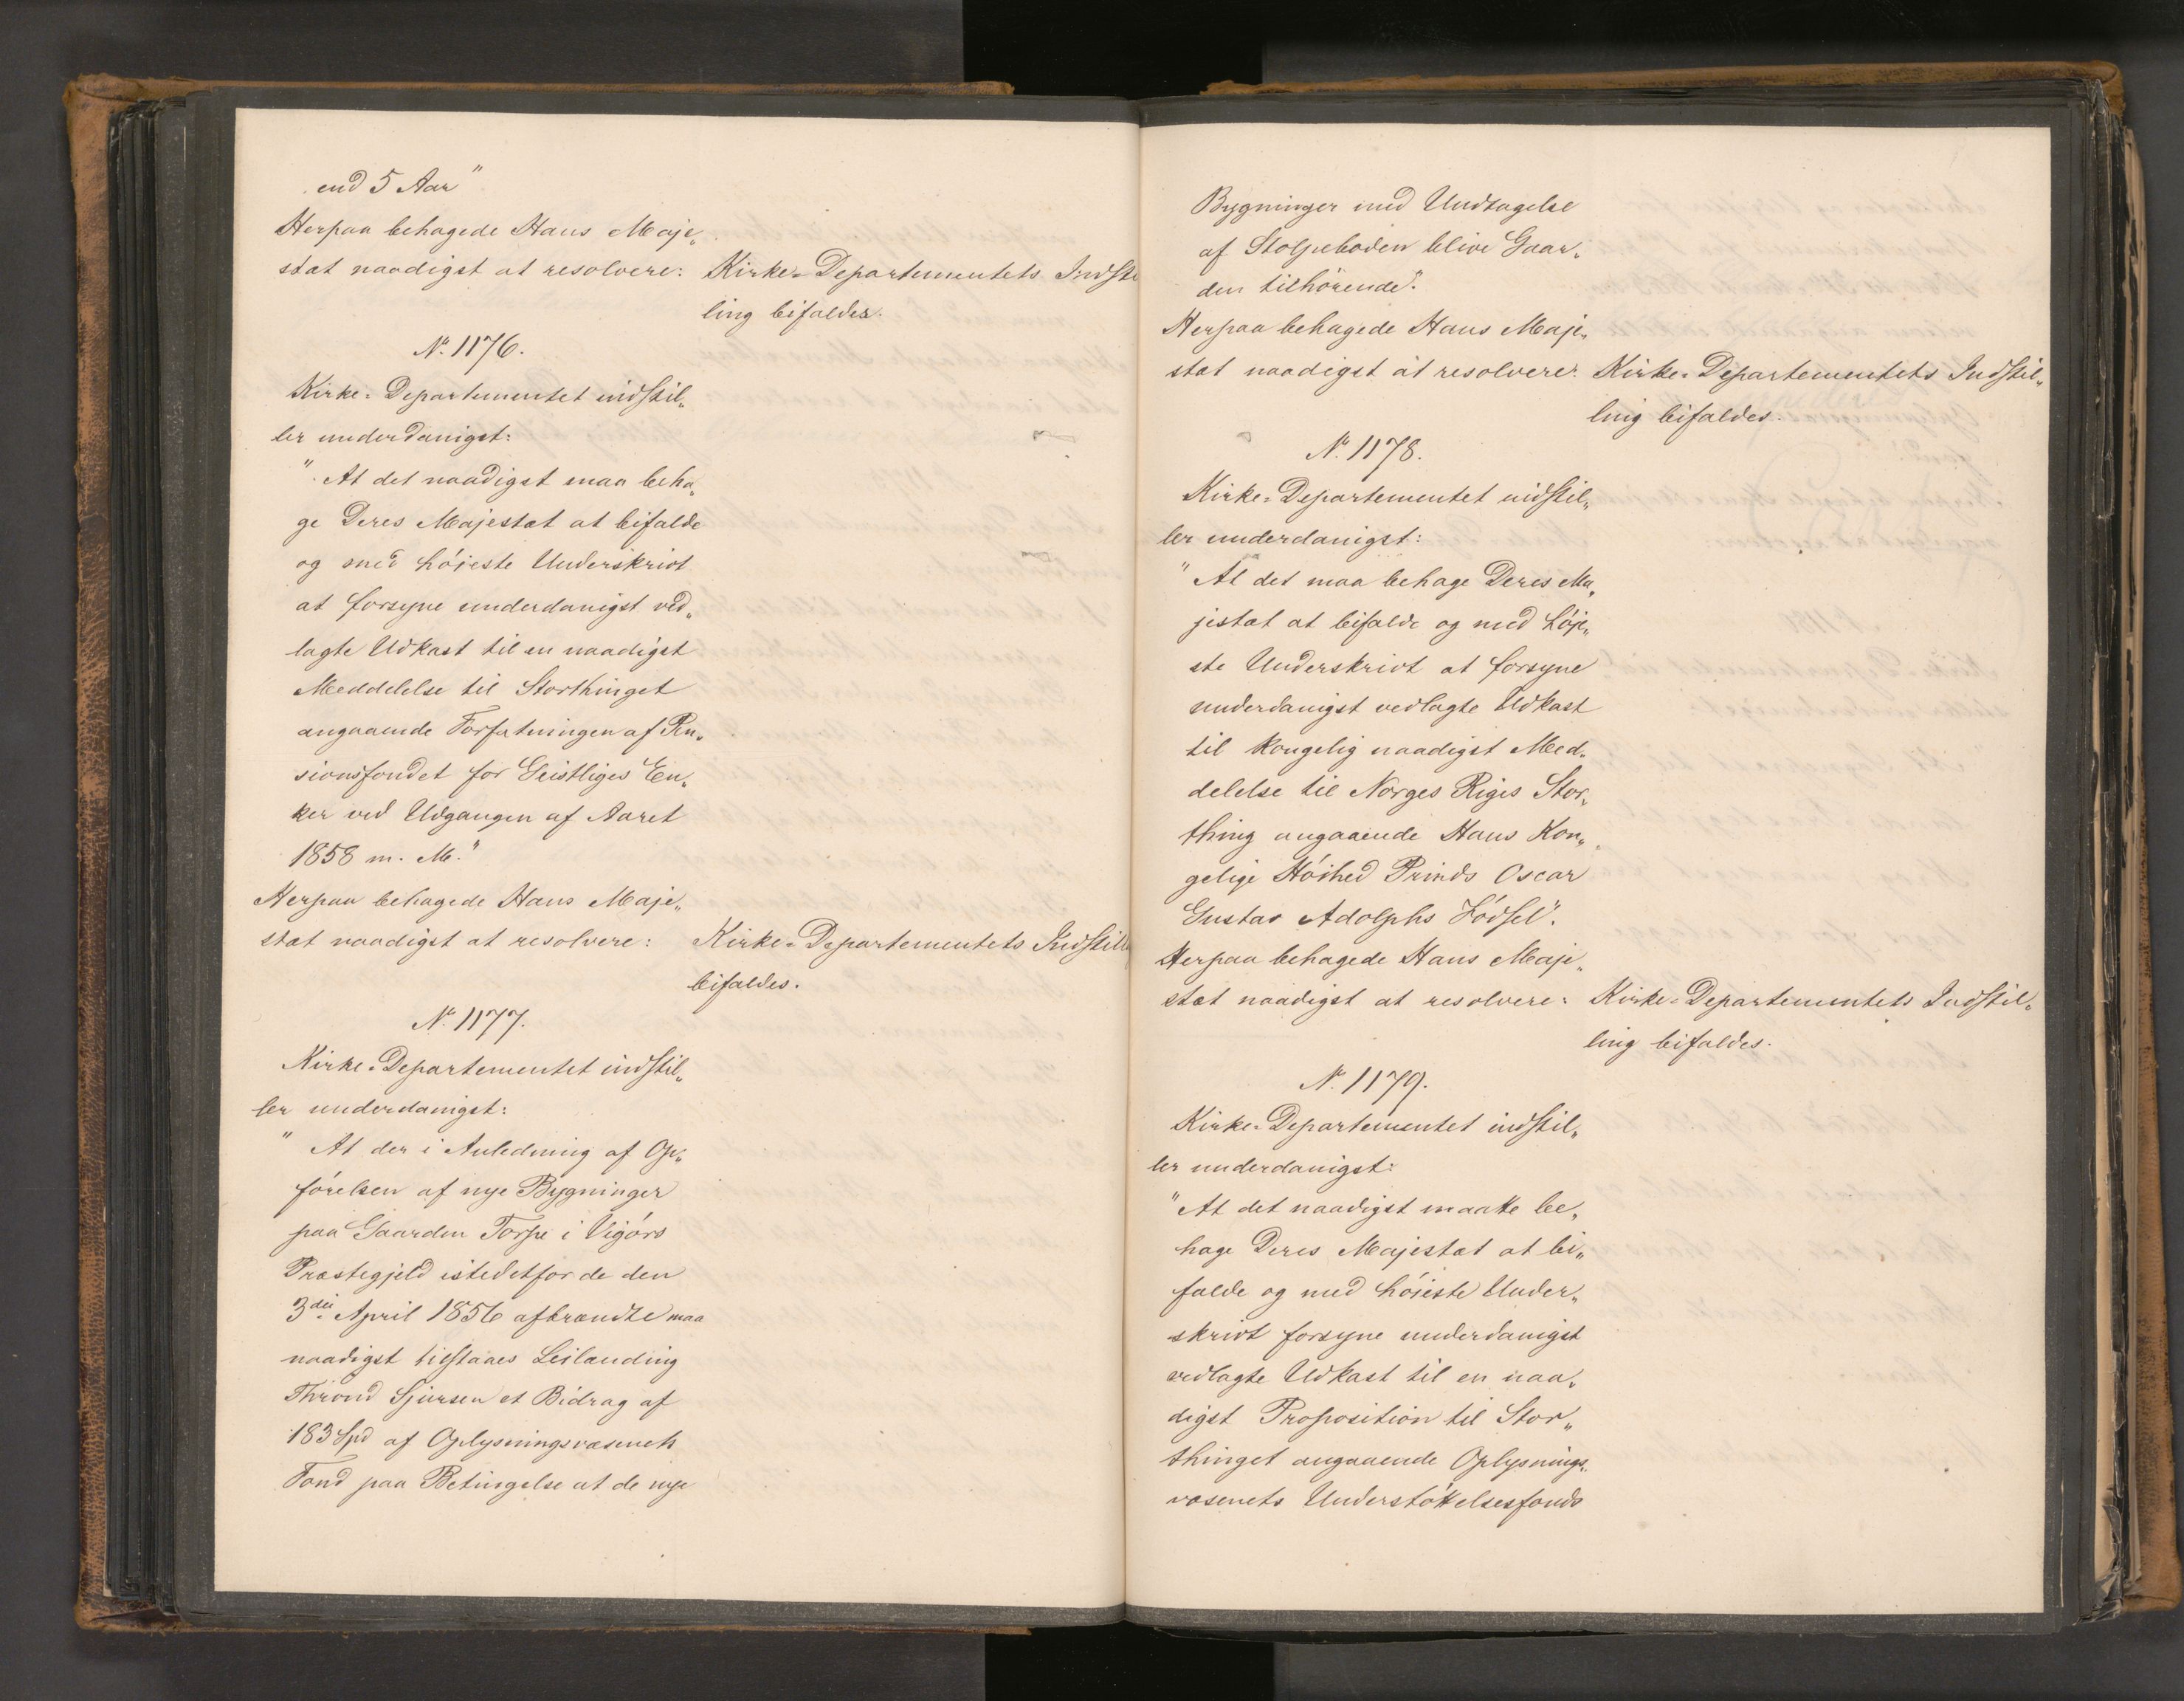 end 5 Aar"
Herpaa behagede Hans Maje„
stæt naadigst at resolvere: Kirke=Departementets Indstil
ling bifaldes.
No. 1176.
Kirke=Departementet indstil„
ler underdanigst:
"At det naadigst maa beha„
ge Deres Majestæt at bifalde
og med höieste Underskrivt
at forsyne underdanigst ved„
lagte Udkast til en naadigst
Meddelelse til Storthinget
angaaende Forfatningen af Pen„
sionsfondet for Geistliges En„
ker ved Udgangen af Aaret
1858 m. M."
Herpaa behagede Hans Maje„
stæt naadigst at resolvere: Kirke=Departementets Indstilling
bifaldes.
No. 1177.
Kirke=Departementet indstil„
ler underdanigst:
"At der i Anledning af Op„
förelsen af nye Bygninger
paa Gaarden Torpe i Vigörs
Præstegjeld istedetfor de den
3die April 1856 afbrændte maa
naadigst tilstaaes Leilænding
Thrond Sjursen et Bidrag af
183 Spd af Oplysningsvæsenets
Fond paa Betingelse at de nye
Bygninger med Undtagelse
af Stolpeboden blive Gaar„
den tilhörende".
Herpaa behagede Hans Maje„
stæt naadigst at resolvere: Kirke=Departementets Indstil„
ling bifaldes.
No. 1178.
Kirke=Departementet indstil„
ler underdanigst:
"At det maa behage Deres Ma„
jestæt at bifalde og med höje„
ste Underskrivt at forsyne
underdanigst vedlagte Udkast
til kongelig naadigst Med„
delelse til Norges Riges Stor„
thing angaaende Hans Kon„
gelige Höihed Prinds Oscar
Gustav Adolphs Födsel".
Herpaa behagede Hans Maje„
stæt naadigst at resolvere: Kirke=Departementets Indstil„
ling bifaldes.
No. 1179.
Kirke=Departementet indstil„
ler underdanigst:
"At det naadigst maatte be„
hage Deres Majestæt at bi„
falde og med höieste Under„
skrivt forsyne underdanigst
vedlagte Udkast til en naa„
digst Proposition til Stor„
thinget angaaende Oplysnings„
væsenets Understöttelsesfonds